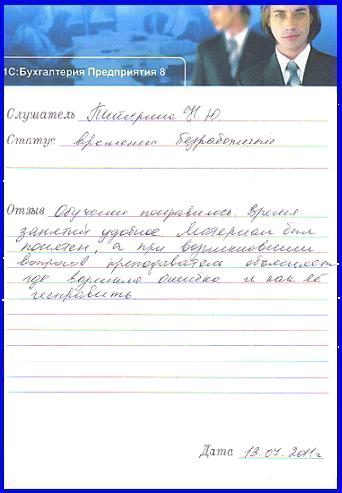 1С:Бухгалтерия Предприятия 8
Слушатель Питерина Н Ю
Статус временно безработная
Отзыв Обучение понравилось. Время
занятий удобное. Материал был
понятен, а при возникновении
вопросов преподаватель объяснял
где возникла ошибка и как её
исправить.
Дата 13.07.2011г